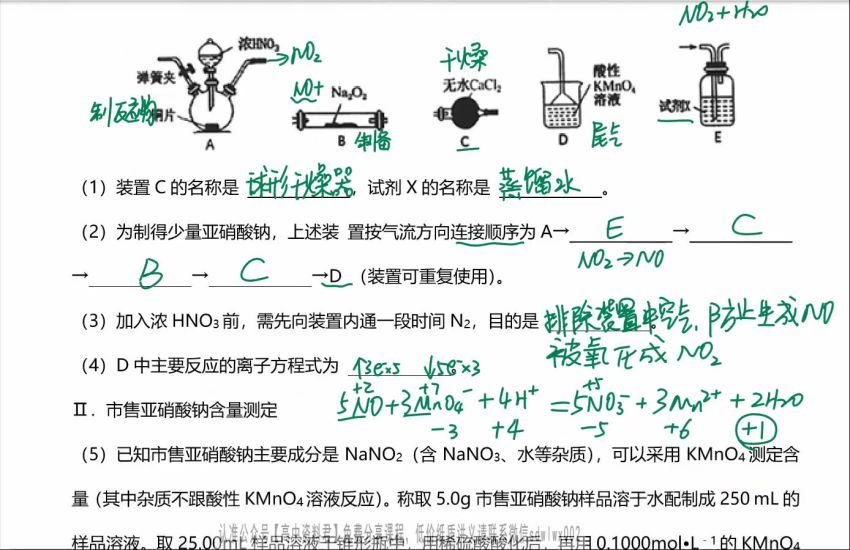 NO₂+H₂O
浓HNO₃ →NO₂
弹簧夹
制反应物 铜片
A
NO+ Na₂O₂
B 制备
干燥
无水CaCl₂
C
酸性
KMnO₄
溶液
D 尾气
试剂X
E
(1) 装置 C 的名称是 球形干燥器, 试剂 X 的名称是 蒸馏水 。
(2) 为制得少量亚硝酸钠, 上述装 置按气流方向连接顺序为 A→ E → C
NO₂→NO
→ B → C →D (装置可重复使用)。
(3) 加入浓 HNO₃ 前, 需先向装置内通一段时间 N₂, 目的是 排除装置中空气, 防止生成NO
被氧化成 NO₂
(4) D 中主要反应的离子方程式为 ↑3e⁻×5 ↓5e⁻×3
+2 +7 +5
5NO+3MnO₄⁻+4H⁺=5NO₃⁻+3Mn²⁺+2H₂O
Ⅱ. 市售亚硝酸钠含量测定
-3 +4 -5 +6 +1
(5) 已知市售亚硝酸钠主要成分是 NaNO₂ (含 NaNO₃、水等杂质), 可以采用 KMnO₄ 测定含
量 (其中杂质不跟酸性 KMnO₄ 溶液反应)。称取 5.0g 市售亚硝酸钠样品溶于水配制成 250 mL 的
样品溶液。取 25.00mL 样品溶液于锥形瓶中, 用稀硫酸酸化后, 再用 0.1000mol•L⁻¹ 的 KMnO₄